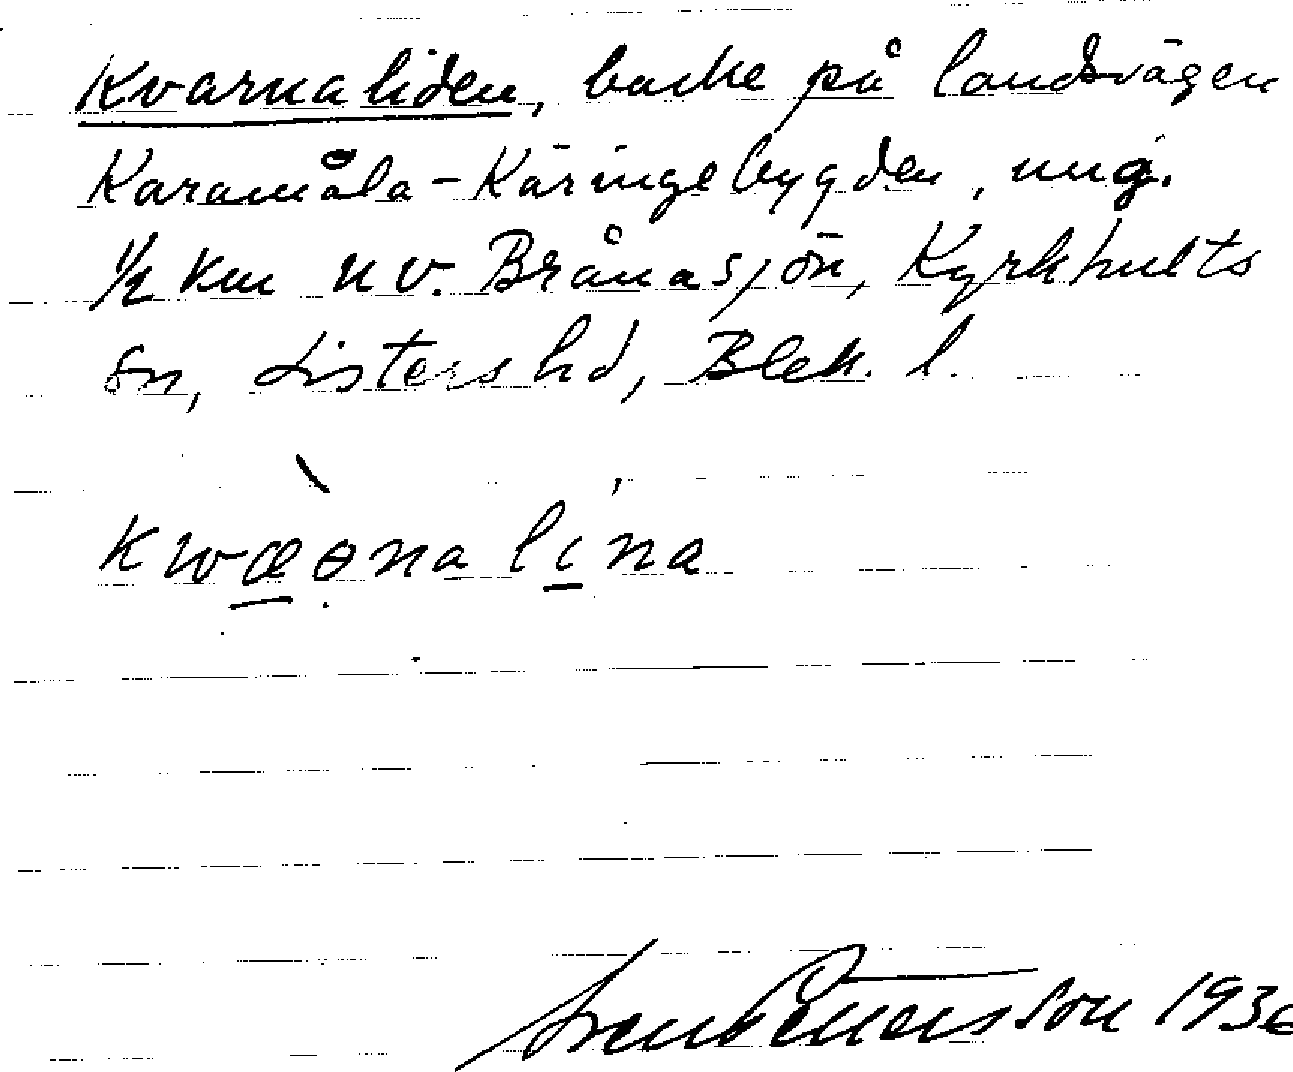 Kvarnaliden, backe på landsvägen
Karamåla-Käringebygden, ung.
1/2 km nv. Brånasjön, Kyrkhults
sn, Listers hd, Blek. l.
kwæǝna lina
Sven Pettersson 1936